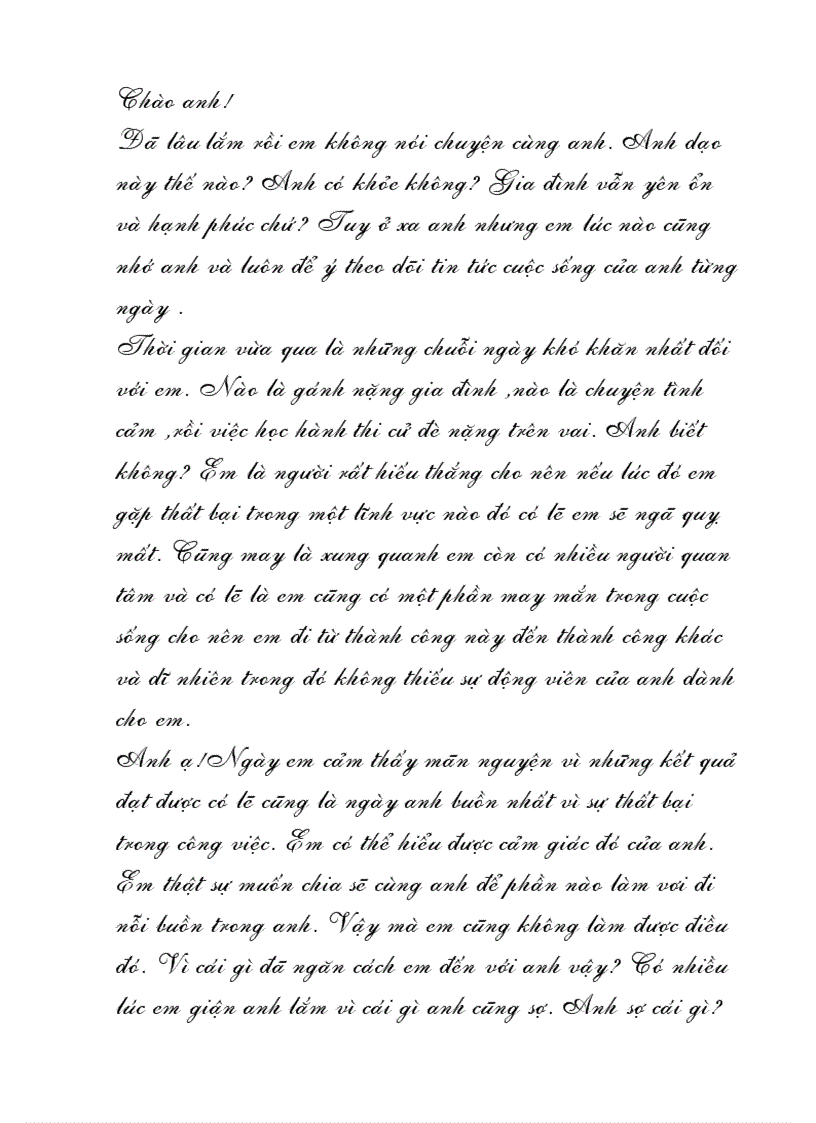 Chào anh!
Đã lâu lắm rồi em không nói chuyện cùng anh. Anh dạo
này thế nào? Anh có khỏe không? Gia đình vẫn yên ổn
và hạnh phúc chứ? Tuy ở xa anh nhưng em lúc nào cũng
nhớ anh và luôn để ý theo dõi tin tức cuộc sống của anh từng
ngày .
Thời gian vừa qua là những chuỗi ngày khó khăn nhất đối
với em. Nào là gánh nặng gia đình ,nào là chuyện tình
cảm ,rồi việc học hành thi cử đè nặng trên vai. Anh biết
không? Em là người rất hiếu thắng cho nên nếu lúc đó em
gặp thất bại trong một lĩnh vực nào đó có lẽ em sẽ ngã quỵ
mất. Cũng may là xung quanh em còn có nhiều người quan
tâm và có lẽ là em cũng có một phần may mắn trong cuộc
sống cho nên em đi từ thành công này đến thành công khác
và dĩ nhiên trong đó không thiếu sự động viên của anh dành
cho em.
Anh ạ!Ngày em cảm thấy mãn nguyện vì những kết quả
đạt được có lẽ cũng là ngày anh buồn nhất vì sự thất bại
trong công việc. Em có thể hiểu được cảm giác đó của anh.
Em thật sự muốn chia sẽ cùng anh để phần nào làm vơi đi
nỗi buồn trong anh. Vậy mà em cũng không làm được điều
đó. Vì cái gì đã ngăn cách em đến với anh vậy? Có nhiều
lúc em giận anh lắm vì cái gì anh cũng sợ. Anh sợ cái gì?